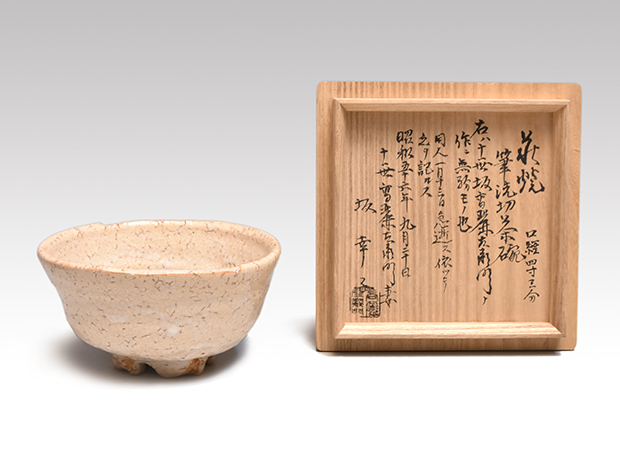 萩焼
筆洗切茶碗 口経四寸三分
右ハ十一世坂高麗左衛門ノ
作ニ無紛モノ也
同人一月十三日急逝ス依ツテ
之ヲ記ロス
昭和五十六年九月二十日
十一世高麗左衛門妻
坂幸子